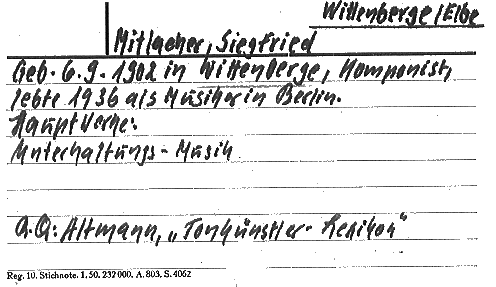 Wittenberge/Elbe
Mitlacher, Siegfried
Geb. 6.9.1902 in Wittenberge, Komponist,
lebte 1936 als Musiker in Berlin.
Hauptwerke:
Unterhaltungs-Musik
a.a: Altmann, „Tonkünstler-Lexikon"
Reg. 10. Stichnote. 1, 50. 232000. A. 803. S. 4062